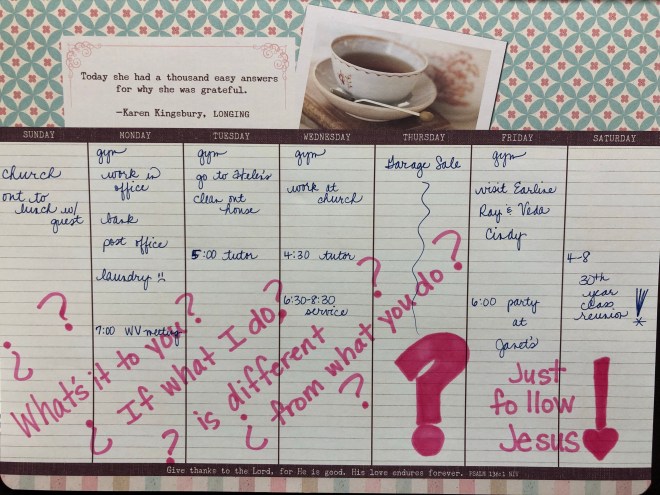 Today she had a thousand easy answers
for why she was grateful.
—Karen Kingsbury, LONGING
SUNDAY
church
out to
lunch w/
guest
MONDAY
gym
work in
office
bank
post office
laundry
7:00 WV meeting
TUESDAY
gym
go to Helen's
clean out
house
5:00 tutor
WEDNESDAY
gym
work at
church
4:30 tutor
6:30-8:30
service
THURSDAY
Garage Sale
FRIDAY
gym
visit Earline
Ray & Veda
Cindy
6:00 party
at
Janet's
SATURDAY
4-8
30th
year
class
reunion
What's it to you?
If what I do
is different
from what you do?
?
Just
follow
Jesus!
Give thanks to the Lord, for He is good. His love endures forever. PSALM 136:1 NIV